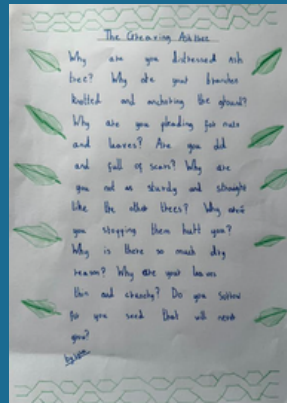 The Greaving Ash tree
Why are you distressed Ash
tree? Why are your branches
knotted and anchoring the ground?
Why are you pleading for nuts
and leaves? Are you old
and full of scars? Why are
you not as sturdy and straight
like the other trees? Why
you stopping them hurt you?
Why is there so much dry
reason? Why are your leaves
thin and crunchy? Do you sorrow
for you seed that will never
grow?